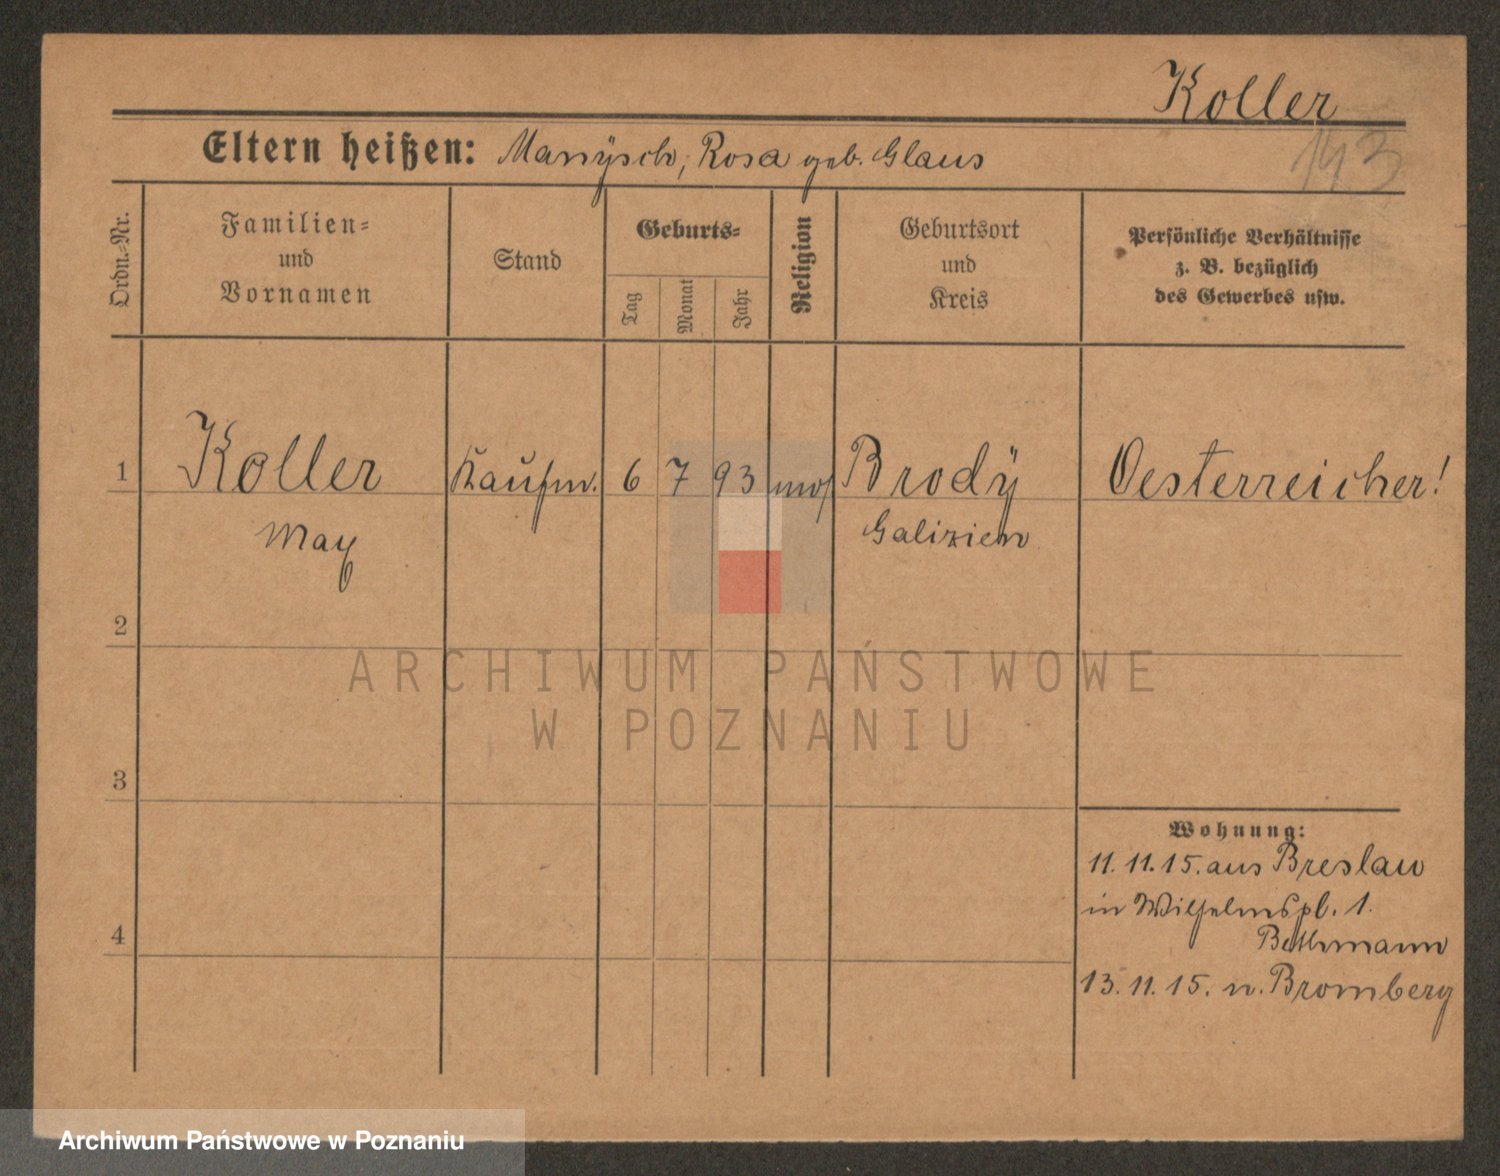 Koller
143
Eltern heißen: Manÿsch, Rosa geb. Glaus
Ordn.-Nr.
Familien-
und
Vornamen
Stand
Geburts-
Tag
Monat
Jahr
Religion
Geburtsort
und
Kreis
Persönliche Verhältnisse
z. B. bezüglich
des Gewerbes usw.
1 Koller Kaufm. 6 7 93 mos Brodÿ Oesterreicher!
Max Galizien
2
ARCHIWUM PAŃSTWOWE
W POZNANIU
3
Wohnung:
11. 11. 15. aus Breslau
in Wilhelmspl. 1.
4 Bethmann
13. 11. 15. n. Bromberg
Archiwum Państwowe w Poznaniu